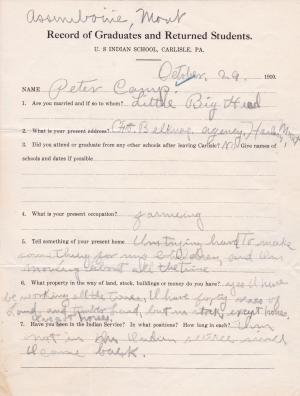 Assinniboine, Mont
Record of Graduates and Returned Students.
U. S INDIAN SCHOOL, CARLISLE, PA.
October, 29. 1910.
NAME Peter Camp.
1. Are you married and if so to whom? Little Big Head
2. What is your present address? Ft. Belknap agency, Mont
3. Did you attend or graduate from any other schools after leaving Carlisle? No Give names of
schools and dates if possible
4. What is your present occupation? farmeing
5. Tell something of your present home I am trying hard to make
something for my children, and am
moving about all the time
6. What property in the way of land, stock, buildings or money do you have? yes I have
be working all the time, I have forty acres of
Land, and timber land, but no stock, except horses.
7. Have you been in the Indian Service? In what positions? How long in each? I am
not in the Indian service since
I came back.